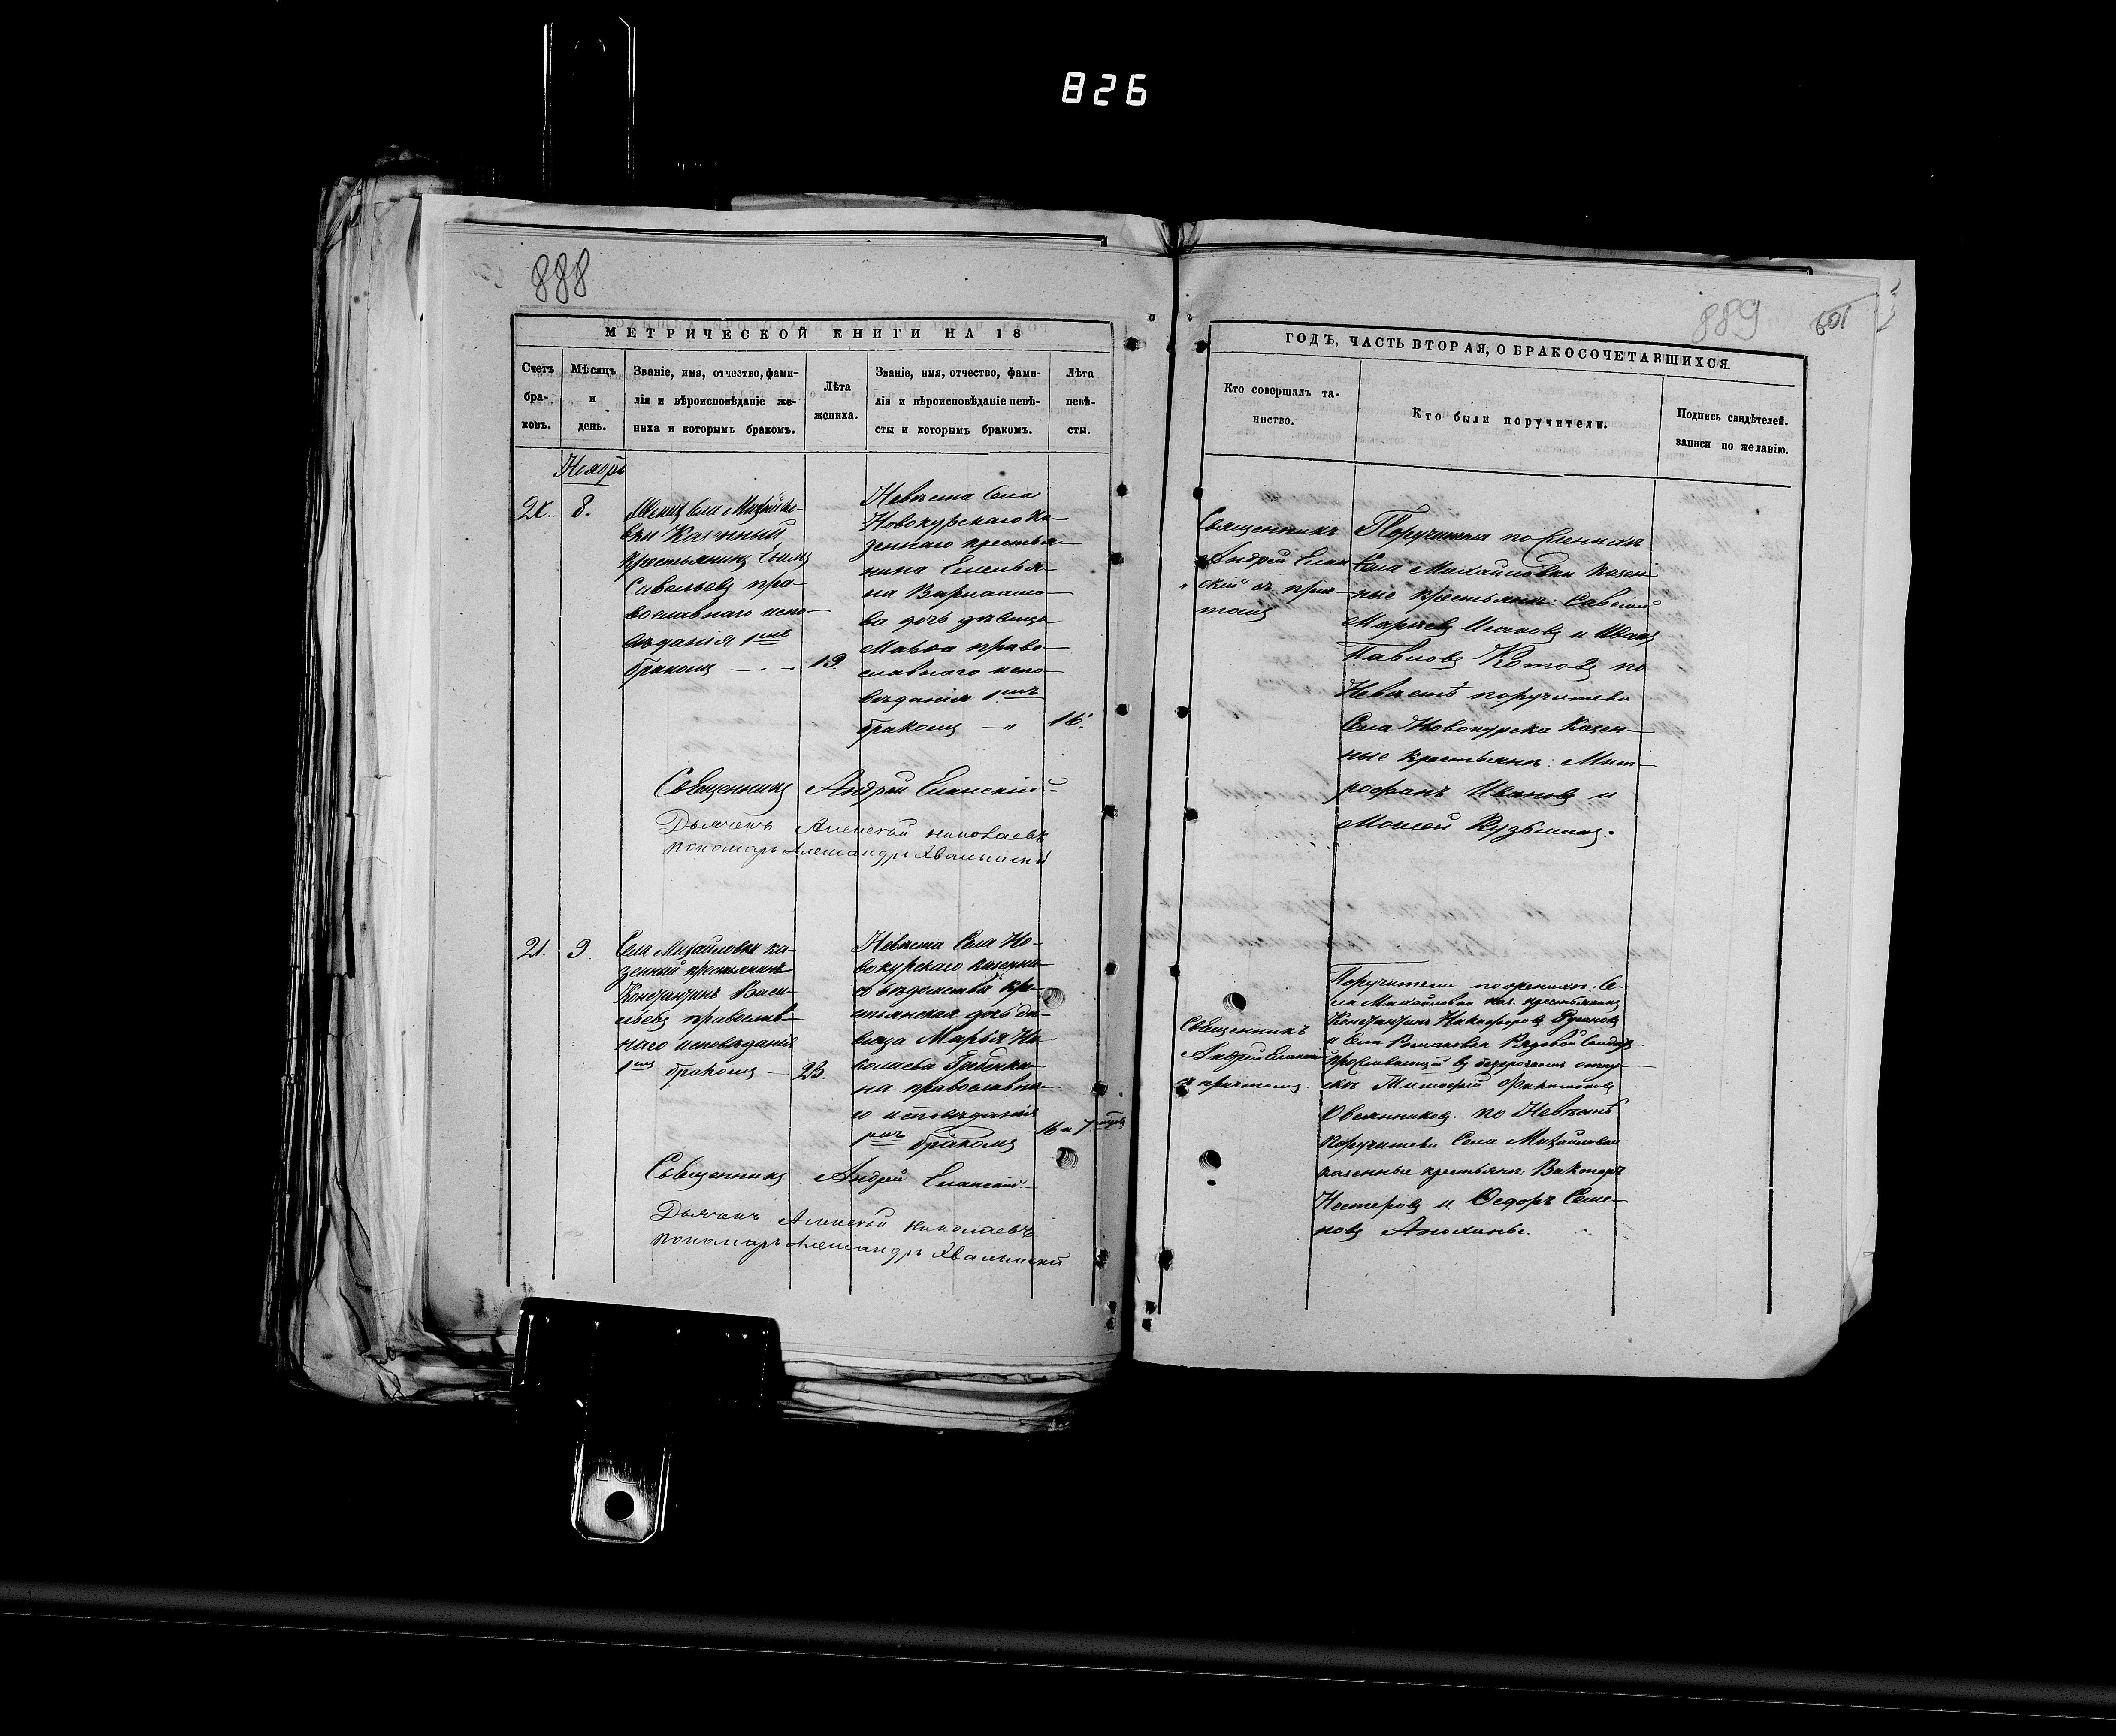 826
888
МЕТРИЧЕСКОЙ КНИГИ НА 18
Счетъ бра- ковъ.
Мѣсяцъ и день.
Званіе, имя, отчество, фами-
лія и вѣроисповѣданіе же-
ниха и которымъ бракомъ.
Лѣта жениха.
Званіе, имя, отчество, фами-
лія и вѣроисповѣданіе невѣ-
сты и которымъ бракомъ.
Лѣта невѣ- сты.
Ноябрь
8.
Села Михайлов-
ки Казенный
крестьянинъ
Савельевъ пра-
вославнаго испо-
вѣданія 1мъ
бракомъ
19
Невѣста Села
Новокурскаго Ка-
зеннаго крестья-
нина Емелья-
на Варлаамо-
ва дочь дѣвица
Марѳа право-
славнаго испо-
вѣданія 1мъ
бракомъ
16.
Священникъ Андрей Еланскій
Дьячекъ Алексѣй Николаевъ
пономарь Александръ Хвалынскій
21. 9.
Села Михайловки ка-
зенный крестьянинъ
Константинъ Васи-
льевъ православ-
наго исповѣданія
1мъ бракомъ
23.
Невѣста Села Но-
вокурскаго казенна-
го вѣдомства кре-
стьянская дочь дѣ-
вица Марья Ни-
колаева Гребенки-
на православна-
го исповѣданія
1мъ бракомъ
16 и 7
Священникъ Андрей Еланскій
Дьячекъ Алексѣй Николаевъ
пономарь Александръ Хвалынскій
889
601
ГОДЪ, ЧАСТЬ ВТОРАЯ, О БРАКОСОЧЕТАВШИХСЯ.
Кто совершалъ та-
инство.
Кто были поручители.
Подпись свидѣтелей.
записи по желанію.
Священникъ
Андрей Елан
скій съ прич-
томъ
Поручители по Женихѣ
Села Михайловки казен
ные крестьяне: Савелій
Исаковъ и Иванъ
Павловъ Котовъ по
Невѣстѣ поручители
Села Новокурска Казен-
ные крестьяне: Мит-
рофанъ Ивановъ и
Моисей Кузьминъ.
Священникъ
Андрей Еланскій
съ причтомъ.
Поручители по женихѣ: Се-
ла Михайловки каз. крестьянинъ
Константинъ Никифоровъ
и Села Романовки Рядовой Солдатъ
проживающій въ безсрочномъ отпу-
скѣ
Овсянниковъ. по Невѣстѣ
поручители Села Михайловки
казенные крестьяне:
Нестеровъ и Ѳедоръ Семе-
новъ